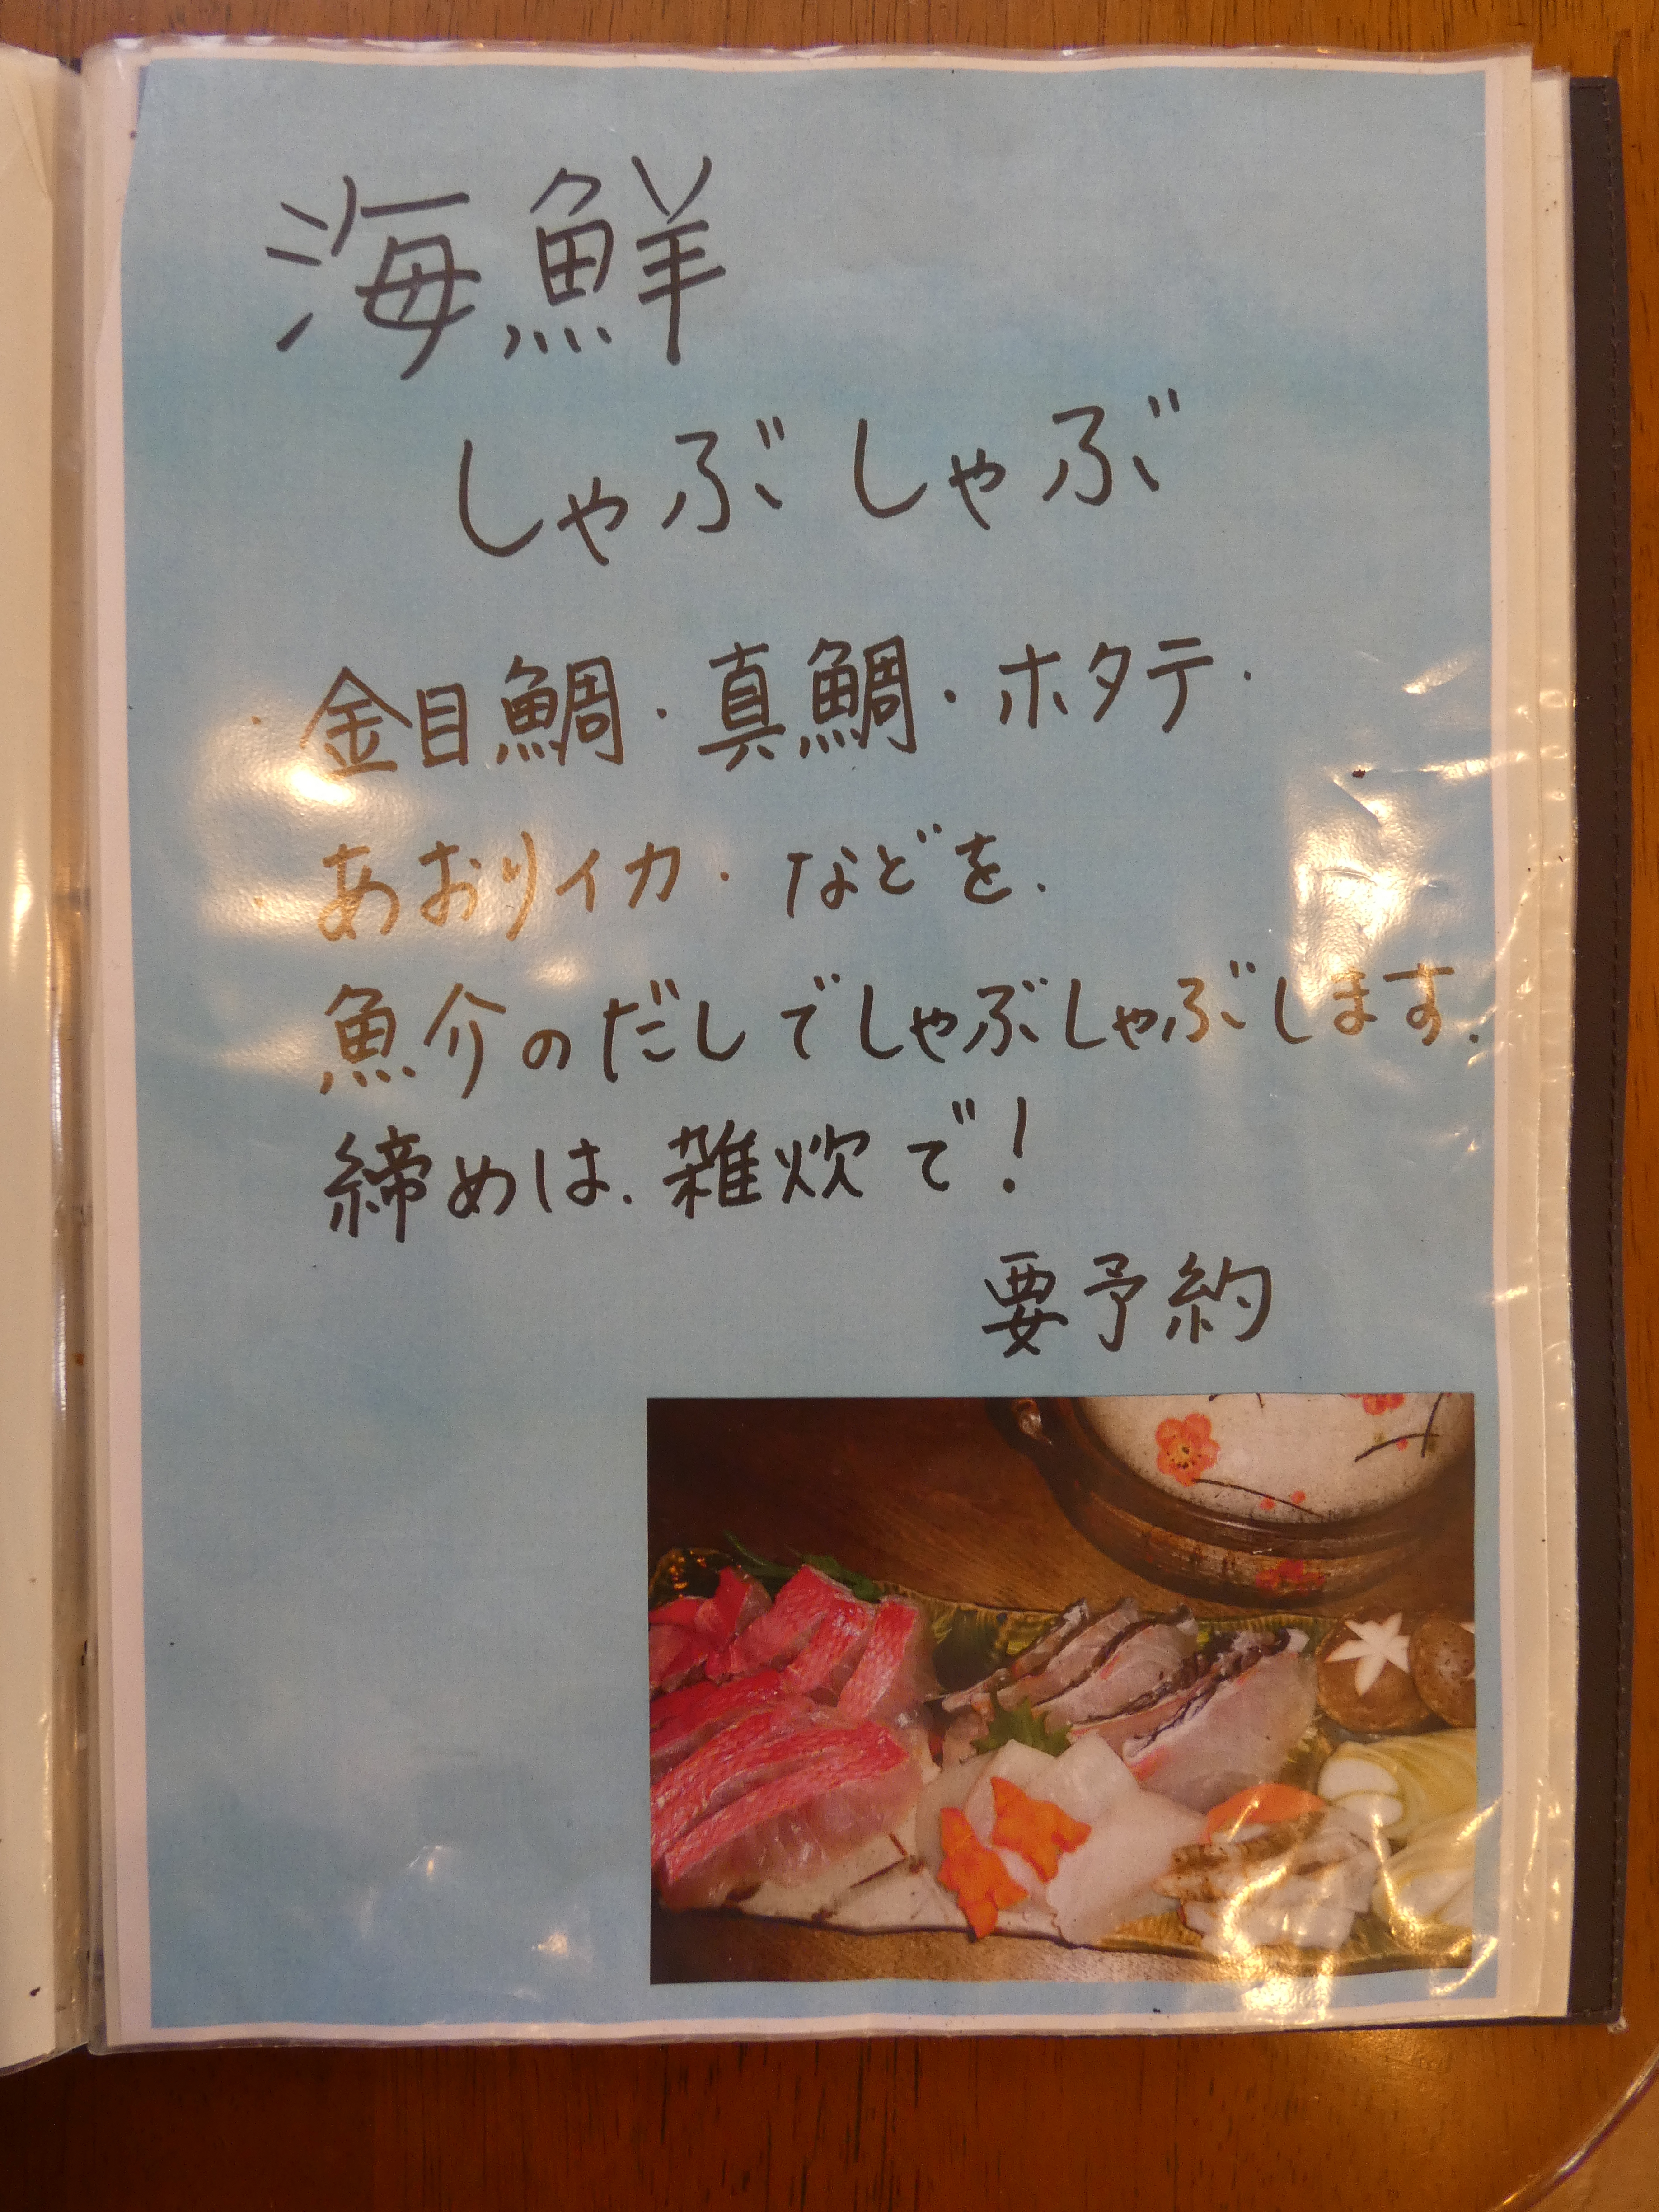 海鮮
しゃぶしゃぶ
金目鯛・真鯛・ホタテ・
あおりイカ・などを、
魚介のだしでしゃぶしゃぶします。
締めは、雑炊で!
要予約